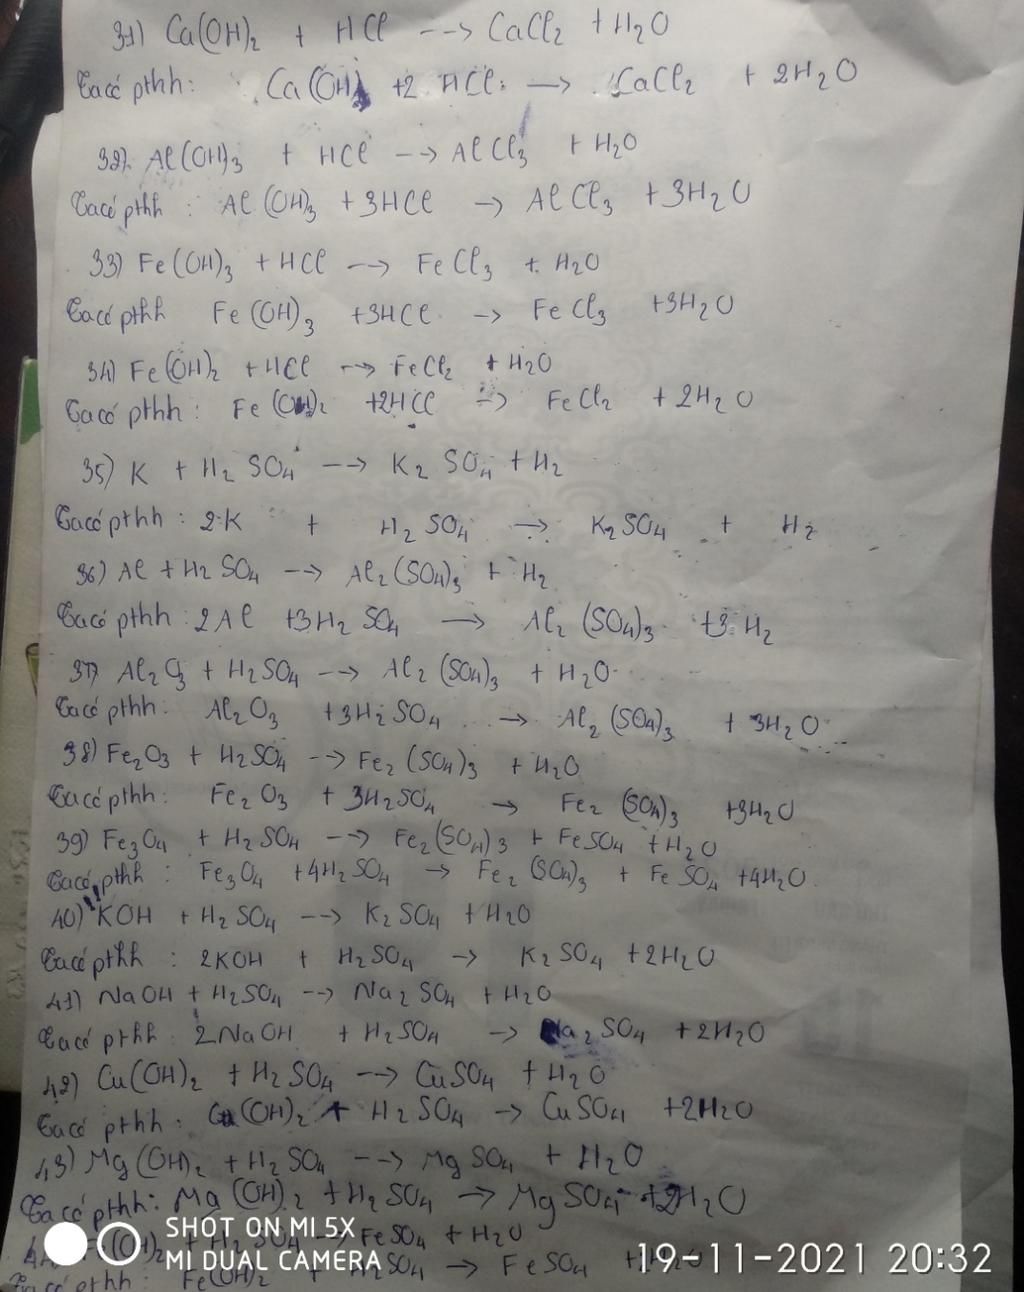 31) Ca(OH)₂ + HCl --→ CaCl₂ + H₂O
Ta có pthh: Ca(OH)₂ +2 HCl → CaCl₂ + 2H₂O
32) Al(OH)₃ + HCl --→ AlCl₃ + H₂O
Ta có pthh : Al(OH)₃ + 3HCl → AlCl₃ + 3H₂O
33) Fe(OH)₃ + HCl --→ FeCl₃ + H₂O
Ta có pthh Fe(OH)₃ +3HCl → FeCl₃ +3H₂O
34) Fe(OH)₂ + HCl --→ FeCl₂ + H₂O
Ta có pthh : Fe(OH)₂ +2HCl → FeCl₂ + 2H₂O
35) K + H₂SO₄ --→ K₂SO₄ + H₂
Ta có pthh : 2K + H₂SO₄ → K₂SO₄ + H₂
36) Al + H₂SO₄ --→ Al₂(SO₄)₃ + H₂
Ta có pthh : 2Al +3H₂SO₄ → Al₂(SO₄)₃ +3H₂
37) Al₂O₃ + H₂SO₄ --→ Al₂(SO₄)₃ + H₂O
Ta có pthh: Al₂O₃ +3H₂SO₄ → Al₂(SO₄)₃ + 3H₂O
38) Fe₂O₃ + H₂SO₄ --→ Fe₂(SO₄)₃ + H₂O
Ta có pthh: Fe₂O₃ + 3H₂SO₄ → Fe₂(SO₄)₃ +3H₂O
39) Fe₃O₄ + H₂SO₄ --→ Fe₂(SO₄)₃ + FeSO₄ + H₂O
Ta có pthh : Fe₃O₄ +4H₂SO₄ → Fe₂(SO₄)₃ + FeSO₄ +4H₂O
40) KOH + H₂SO₄ --→ K₂SO₄ + H₂O
Ta có pthh : 2KOH + H₂SO₄ → K₂SO₄ +2H₂O
41) NaOH + H₂SO₄ --→ Na₂SO₄ + H₂O
Ta có pthh : 2NaOH + H₂SO₄ → Na₂SO₄ +2H₂O
42) Cu(OH)₂ + H₂SO₄ --→ CuSO₄ + H₂O
Ta có pthh : Cu(OH)₂ + H₂SO₄ → CuSO₄ +2H₂O
43) Mg(OH)₂ + H₂SO₄ --→ MgSO₄ + H₂O
Ta có pthh: Mg(OH)₂ + H₂SO₄ → MgSO₄ +2H₂O
Fe(OH)₂ + H₂SO₄ --→ FeSO₄ + H₂O
Ta có pthh: Fe(OH)₂ + H₂SO₄ → FeSO₄
SHOT ON MI 5X
MI DUAL CAMERA
19-11-2021 20:32